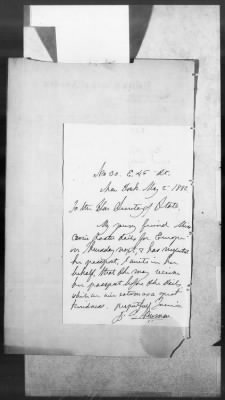 No 30. E. 45 St.
New York May 2 1882
To the Hon Secretary of State.
My young friend Miss
Carrie sails for Europe
on Thursday next, & has requested
her passport, I write in her
behalf, that she may receive
her passport before she sails
which an esteemed a great
kindness. Respectfully
J. Newman